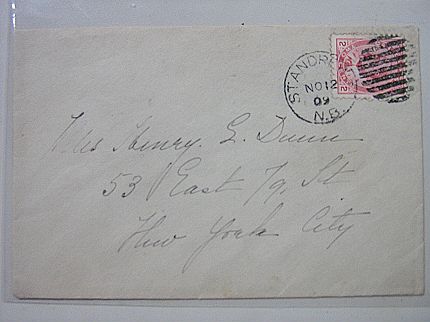 ST. ANDREWS
NO 12
09
N.B.
2 2
Mrs Henry. L. Dunn
53 East 79, St
New York City